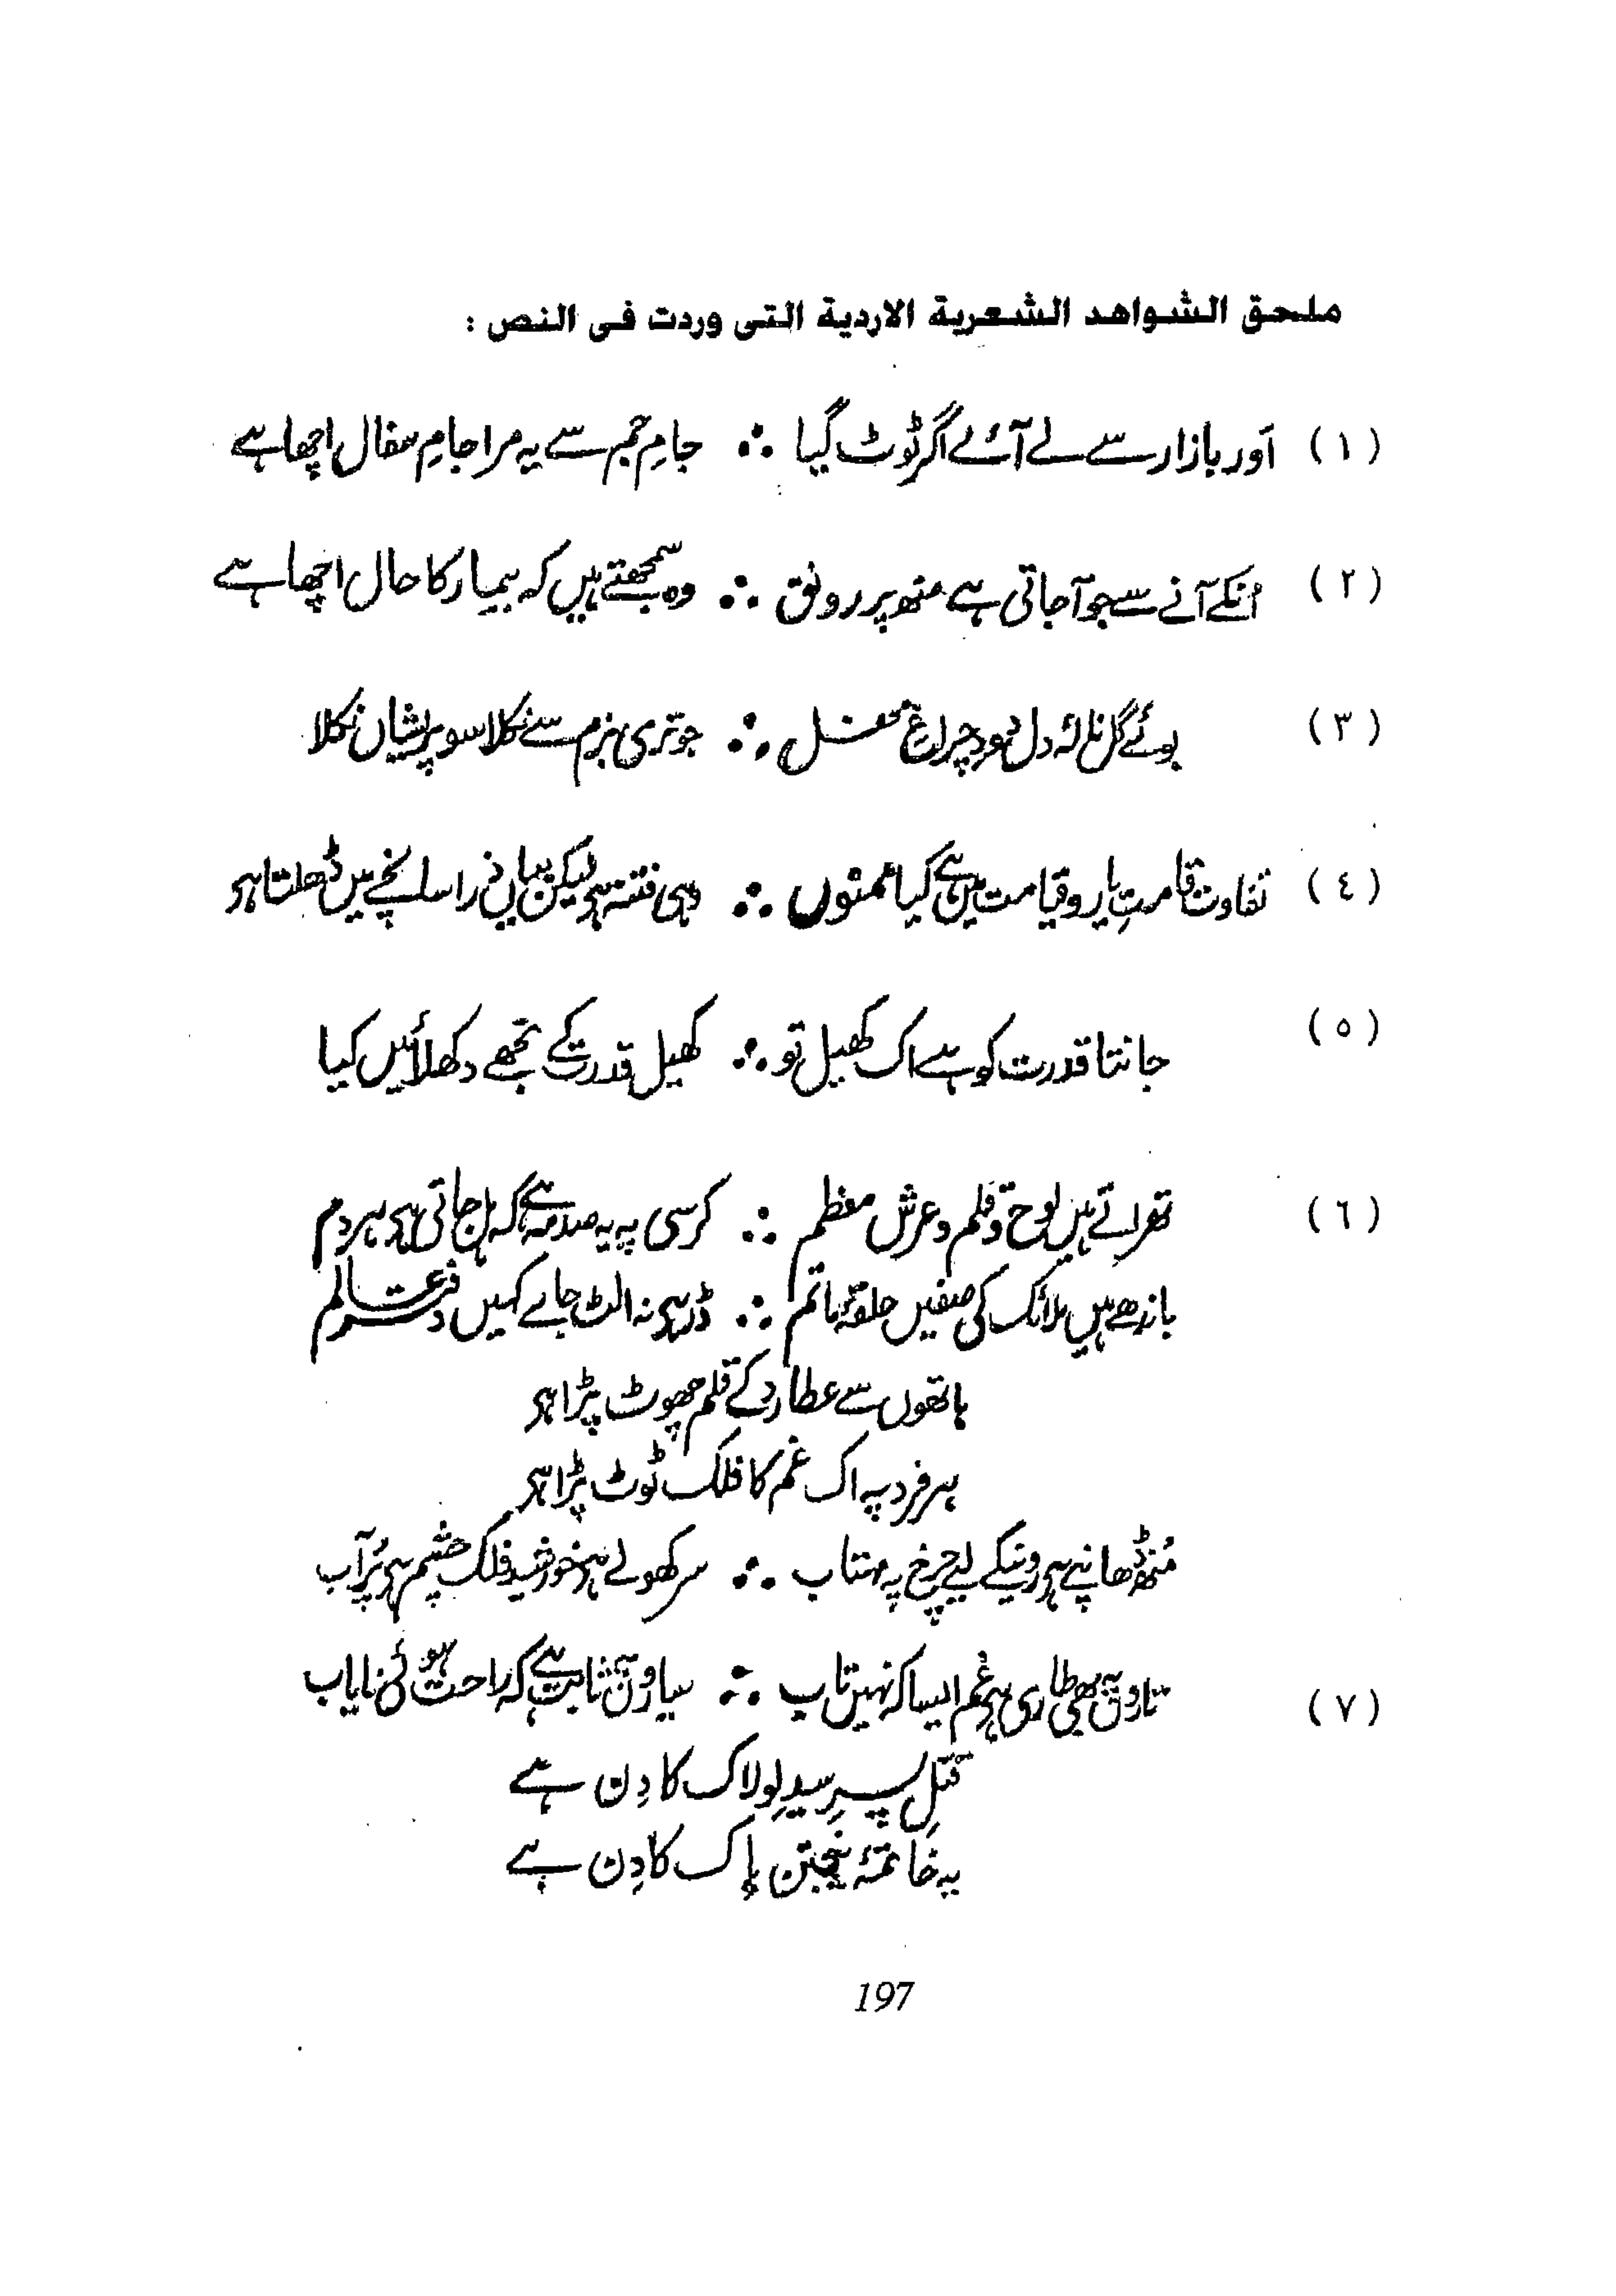 ملحق الشواهد الشعرية الاردية التى وردت فى النص :
(١) اَور بازار سے لے آئے اگر ٹوٹ گیا ∴ جامِ جم سے یہ مرا جامِ سفال اچھا ہے
(٢) اُنکے آنے سے جو آجاتی ہے منھ پر رونق ∴ وہ سمجھتے ہیں کہ بیمار کا حال اچھا ہے
(٣) بوئے گل نالۂ دل دودِ چراغِ محفل ∴ جو تری بزم سے نکلا سو پریشان نکلا
(٤) تفاوت قامتِ یار و قیامت میں ہے کیا ممنوں ∴ وہی فتنہ ہی لیکن یہاں ذرا سانچے میں ڈھلتا ہی
(٥) جانتا قدرت کو ہے اک کھیل تو ∴ کھیل قدرت کے تجھے دکھلائیں کیا
(٦) تھراتے ہیں لوح و قلم و عرش معظم ∴ کرسی پہ یہ صدمہ ہے کہ ہل جاتی ہی ہر دم
باندھے ہیں ملائک کی صفیں حلقۂ ماتم ∴ ڈر ہی نہ الٹ جاے کہیں دفترِ عالم
ہاتھوں سے عطارد کے قلم چھوٹ پڑا ہی
ہر فرد پہ اک غم کا فلک ٹوٹ پڑا ہی
مُنھ ڈھانپے ہی رونیکے لیے چرخ پہ مہتاب ∴ سر کھولے ہی خورشید فلک چشم ہی پُر آب
(٧) تاروں پہ بھی طاری ہی غم ایسا کہ نہیں تاب ∴ سیاروں پہ ثابت ہے کہ راحت ہوئی نایاب
قتلِ پسرِ سیدِ لولاک کا دِن ہے
یہ خاتمۂ پنجتن پاک کا دِن ہے
197